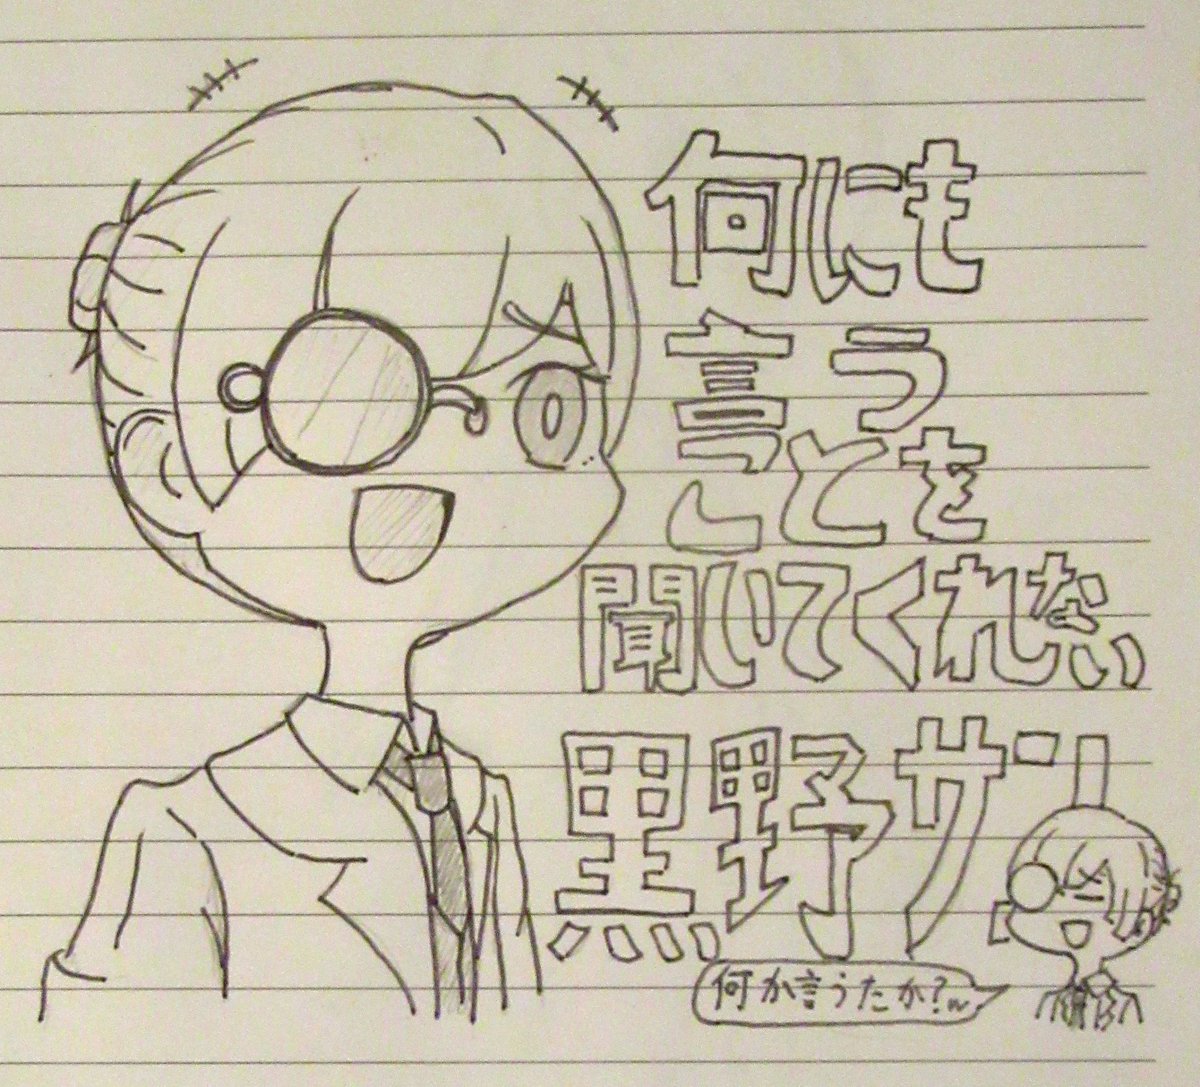 何にも
言う
ことを
聞いてくれない
黒野サン
何か言うたか?w